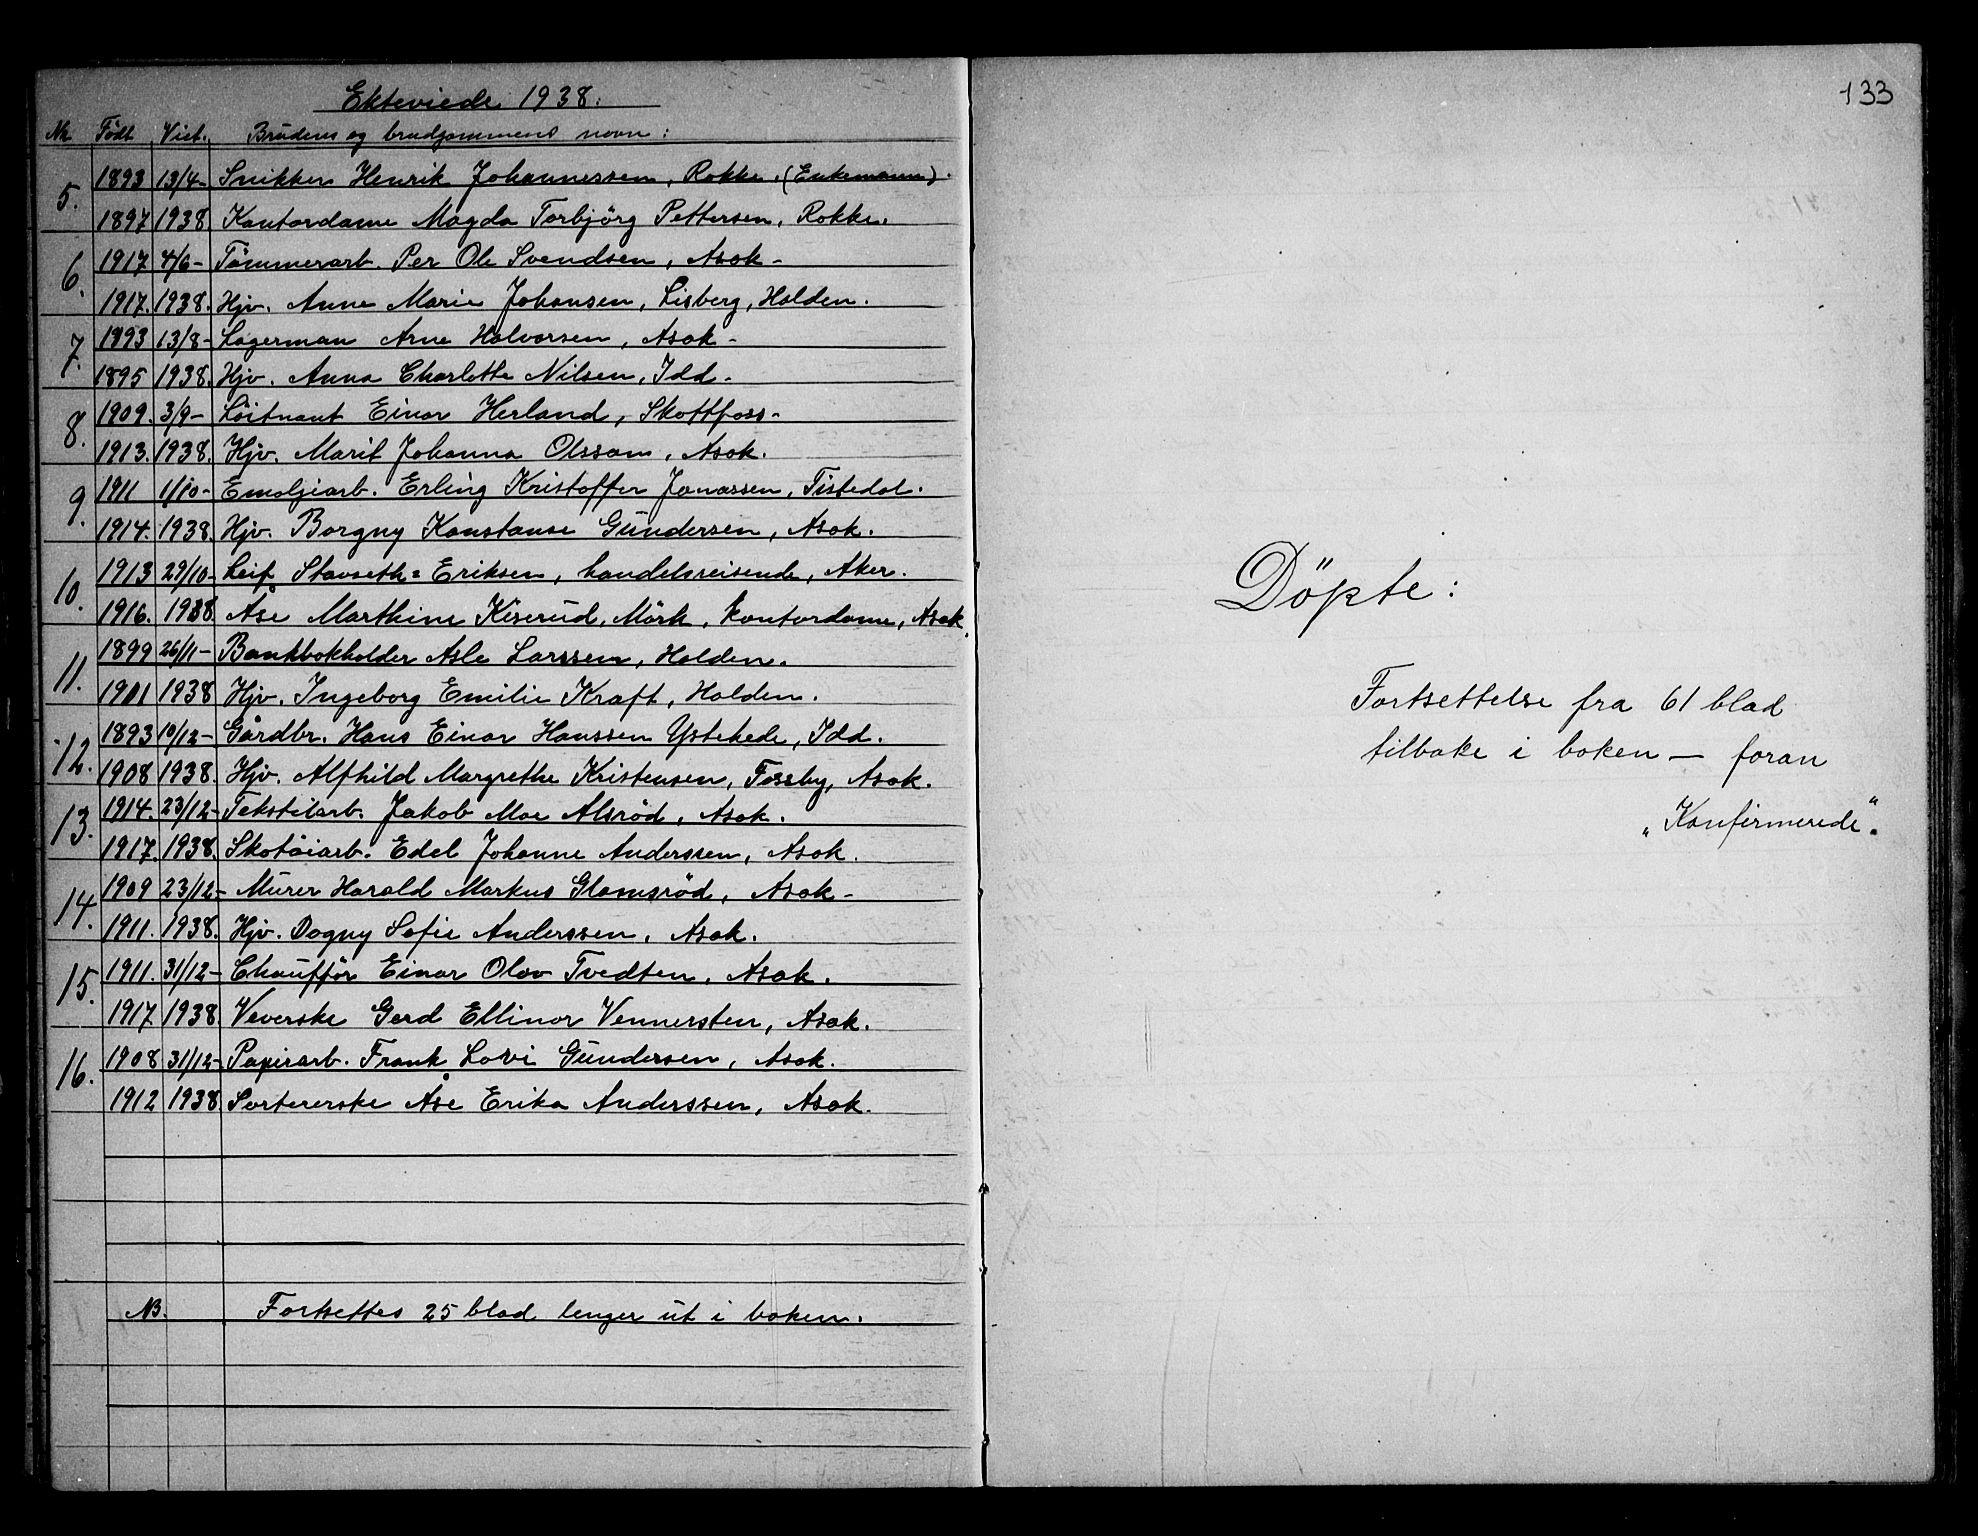 Ekteviede 1938.
Nr. Født Viet. Brudens og brudgommens navn:
5. 1893 13/4- Snikker Henrik Johannessen, Rokke. (Enkemann).
1897 1938. Kontordame Magda Torbjörg Pettersen, Rokke.
6. 1917 4/6- Tömmerarb. Per Ole Svendsen, Asak-
1917. 1938. Hjv. Anne Marie Johansen, Lisberg, Halden.
7. 1893 13/8- Lagerman Arne Halvorsen, Asak-
1895 1938. Hjv. Anna Charlotte Nilsen, Idd-
8. 1909. 3/9- Löitnant Einar Herland, Skottfoss-
1913. 1938. Hjv. Marit Johanna Olsson, Asak.
9. 1911 1/10- Emaljiarb. Erling Kristoffer Jonassen, Tistedal.
1914. 1938. Hjv. Borgny Konstanse Gundersen, Asak.
10. 1913 29/10- Leif Stavseth=Eriksen, handelsreisende, Aker.
1916. 1938 Åse Marthine Kiserud, Mörk, kontordame, Asak.
11. 1899 26/11- Bankbokholder Asle Larssen, Halden.
1901 1938 Hjv. Ingeborg Emilie Kraft, Halden.
12. 1893 10/12- Gårdbr. Hans Einar Hanssen Ystehede, Idd.
1908 1938. Hjv. Alfhild Margrethe Kristensen, Fossby, Asak.
13. 1914. 23/12- Tekstilarb. Jakob Moe Alsröd, Asak.
1917. 1938. Skotöiarb. Edel Johanne Anderssen, Asak.
14. 1909 23/12- Murer Harald Markus Glomsröd, Asak-
1911. 1938. Hjv. Dagny Sofie Anderssen, Asak.
15. 1911. 31/12- Chaufför Einar Olav Tvedten, Asak.
1917 1938. Veverske Gerd Ellinor Vennersten, Asak.
16. 1908 31/12- Papirarb. Frank Lovi Gundersen, Asak.
1912 1938 Sortererske Åse Erika Anderssen, Asak.
NB. Fortsettes 25 blad lenger ut i boken.
133
Döpte:
Fortsettelse fra 61 blad
tilbake i boken — foran
„Konfirmerede".